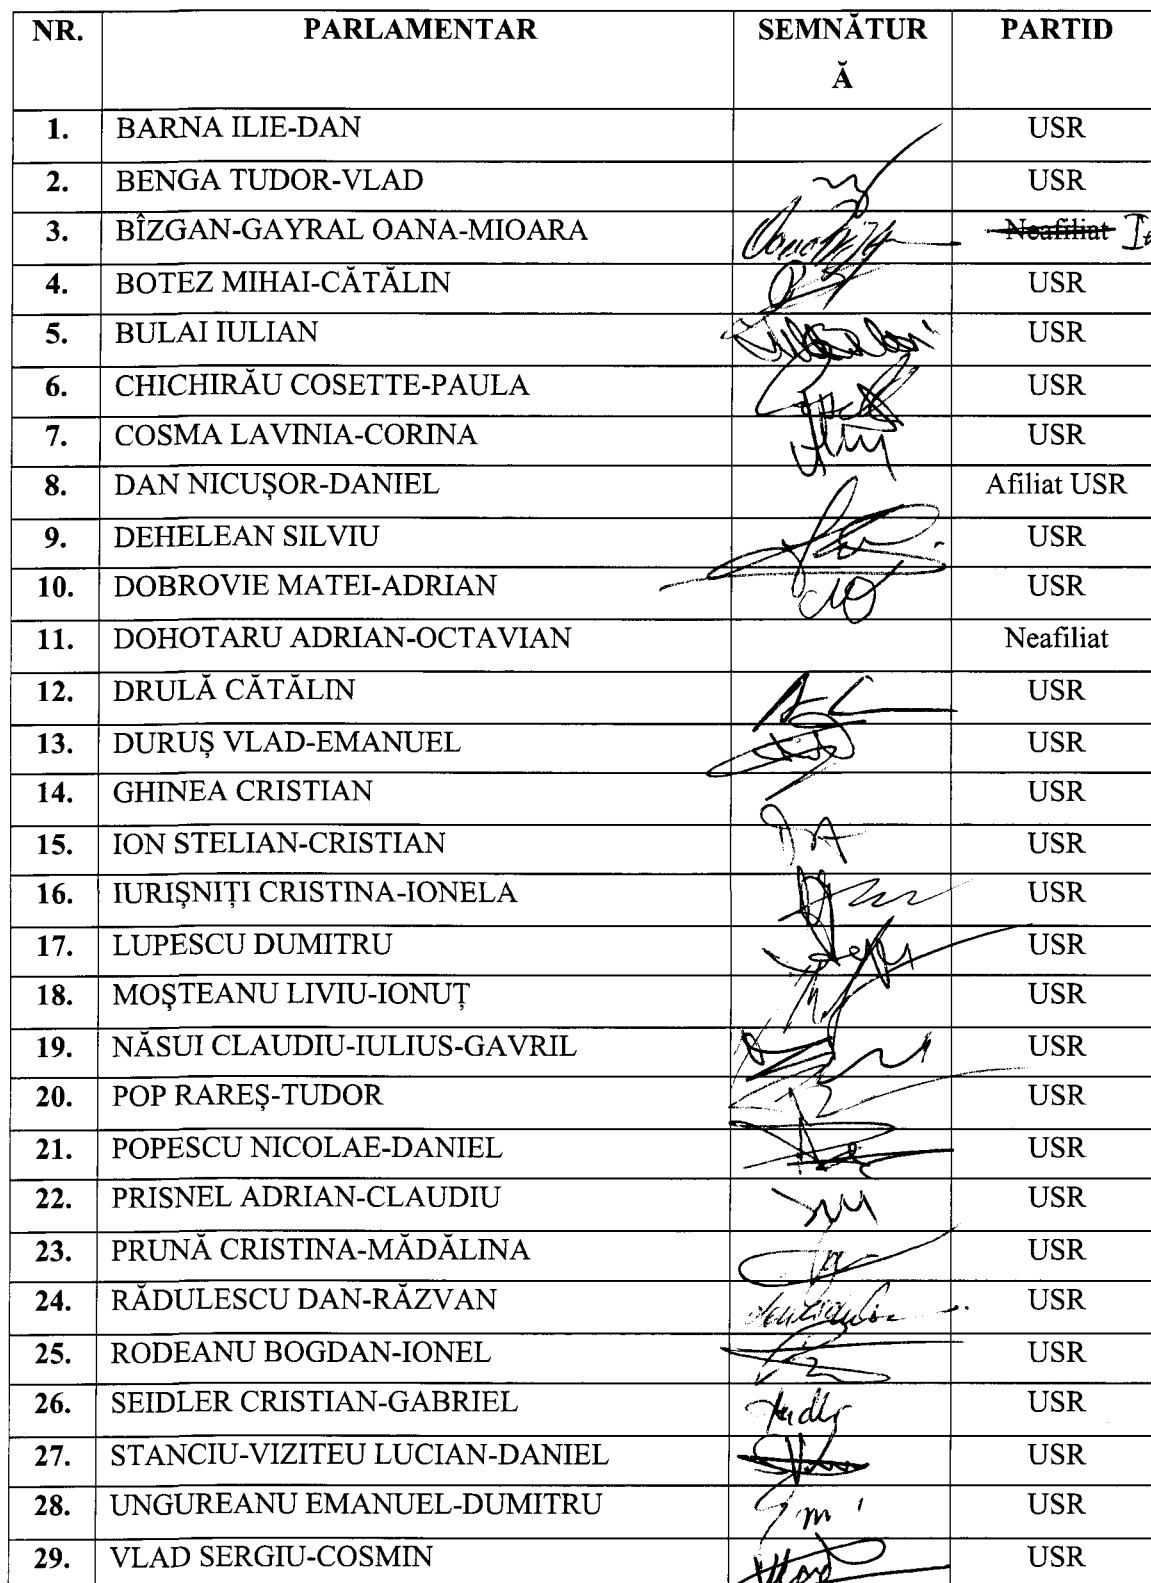 NR. PARLAMENTAR SEMNĂTUR PARTID
Ă
1. BARNA ILIE-DAN USR
2. BENGA TUDOR-VLAD USR
3. BÎZGAN-GAYRAL OANA-MIOARA Neafiliat
4. BOTEZ MIHAI-CĂTĂLIN USR
5. BULAI IULIAN USR
6. CHICHIRĂU COSETTE-PAULA USR
7. COSMA LAVINIA-CORINA USR
8. DAN NICUŞOR-DANIEL Afiliat USR
9. DEHELEAN SILVIU USR
10. DOBROVIE MATEI-ADRIAN USR
11. DOHOTARU ADRIAN-OCTAVIAN Neafiliat
12. DRULĂ CĂTĂLIN USR
13. DURUŞ VLAD-EMANUEL USR
14. GHINEA CRISTIAN USR
15. ION STELIAN-CRISTIAN USR
16. IURIŞNIŢI CRISTINA-IONELA USR
17. LUPESCU DUMITRU USR
18. MOŞTEANU LIVIU-IONUŢ USR
19. NĂSUI CLAUDIU-IULIUS-GAVRIL USR
20. POP RAREŞ-TUDOR USR
21. POPESCU NICOLAE-DANIEL USR
22. PRISNEL ADRIAN-CLAUDIU USR
23. PRUNĂ CRISTINA-MĂDĂLINA USR
24. RĂDULESCU DAN-RĂZVAN USR
25. RODEANU BOGDAN-IONEL USR
26. SEIDLER CRISTIAN-GABRIEL USR
27. STANCIU-VIZITEU LUCIAN-DANIEL USR
28. UNGUREANU EMANUEL-DUMITRU USR
29. VLAD SERGIU-COSMIN USR